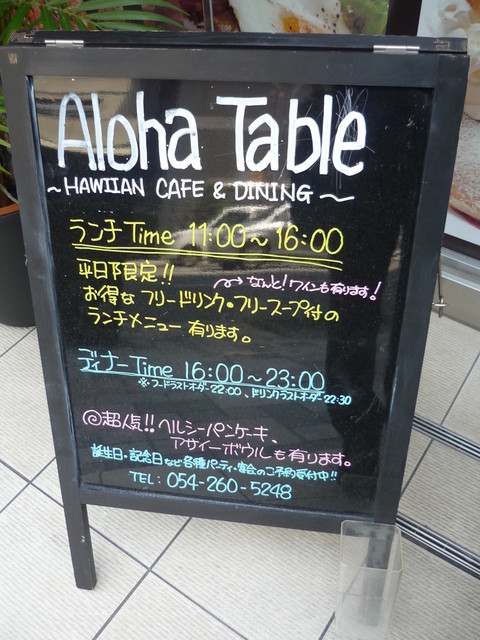 Aloha Table
~HAWIIAN CAFE & DINING~
ランチTime 11:00~16:00
平日限定!!
なんと!ワインも有ります!
お得なフリードリンク・フリースープ付の
ランチメニュー 有ります。
ディナーTime 16:00~23:00
※フードラストオーダー22:00、ドリンクラストオーダー22:30
@超人気!!ヘルシーパンケーキ、
アサイーボウルも有ります。
誕生日・記念日など各種パーティ・宴会のご予約受付中!!
TEL: 054-260-5248